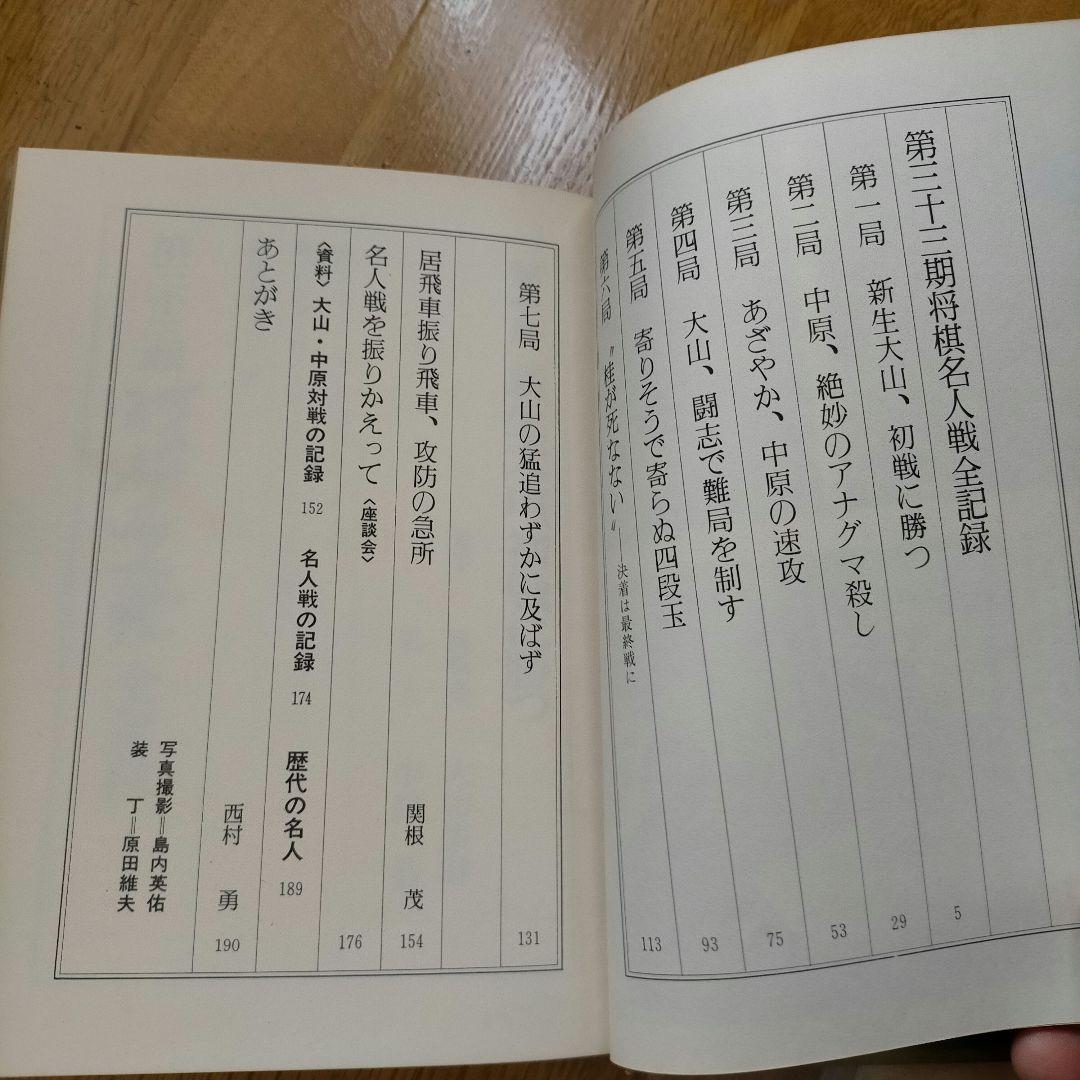 第三十三期将棋名人戦全記録
第一局　新生大山、初戦に勝つ　5
第二局　中原、絶妙のアナグマ殺し　29
第三局　あざやか、中原の速攻　53
第四局　大山、闘志で難局を制す　75
第五局　寄りそうで寄らぬ四段玉　93
第六局　〝桂が死なない〟決着は最終戦に　113
第七局　大山の猛追わずかに及ばず　131
居飛車振り飛車、攻防の急所　関根　茂　154
名人戦を振りかえって〈座談会〉　176
〈資料〉大山・中原対戦の記録　152　名人戦の記録　174　歴代の名人　189
あとがき　西村　勇　190
写真撮影＝島内英佑
装　丁＝原田維夫